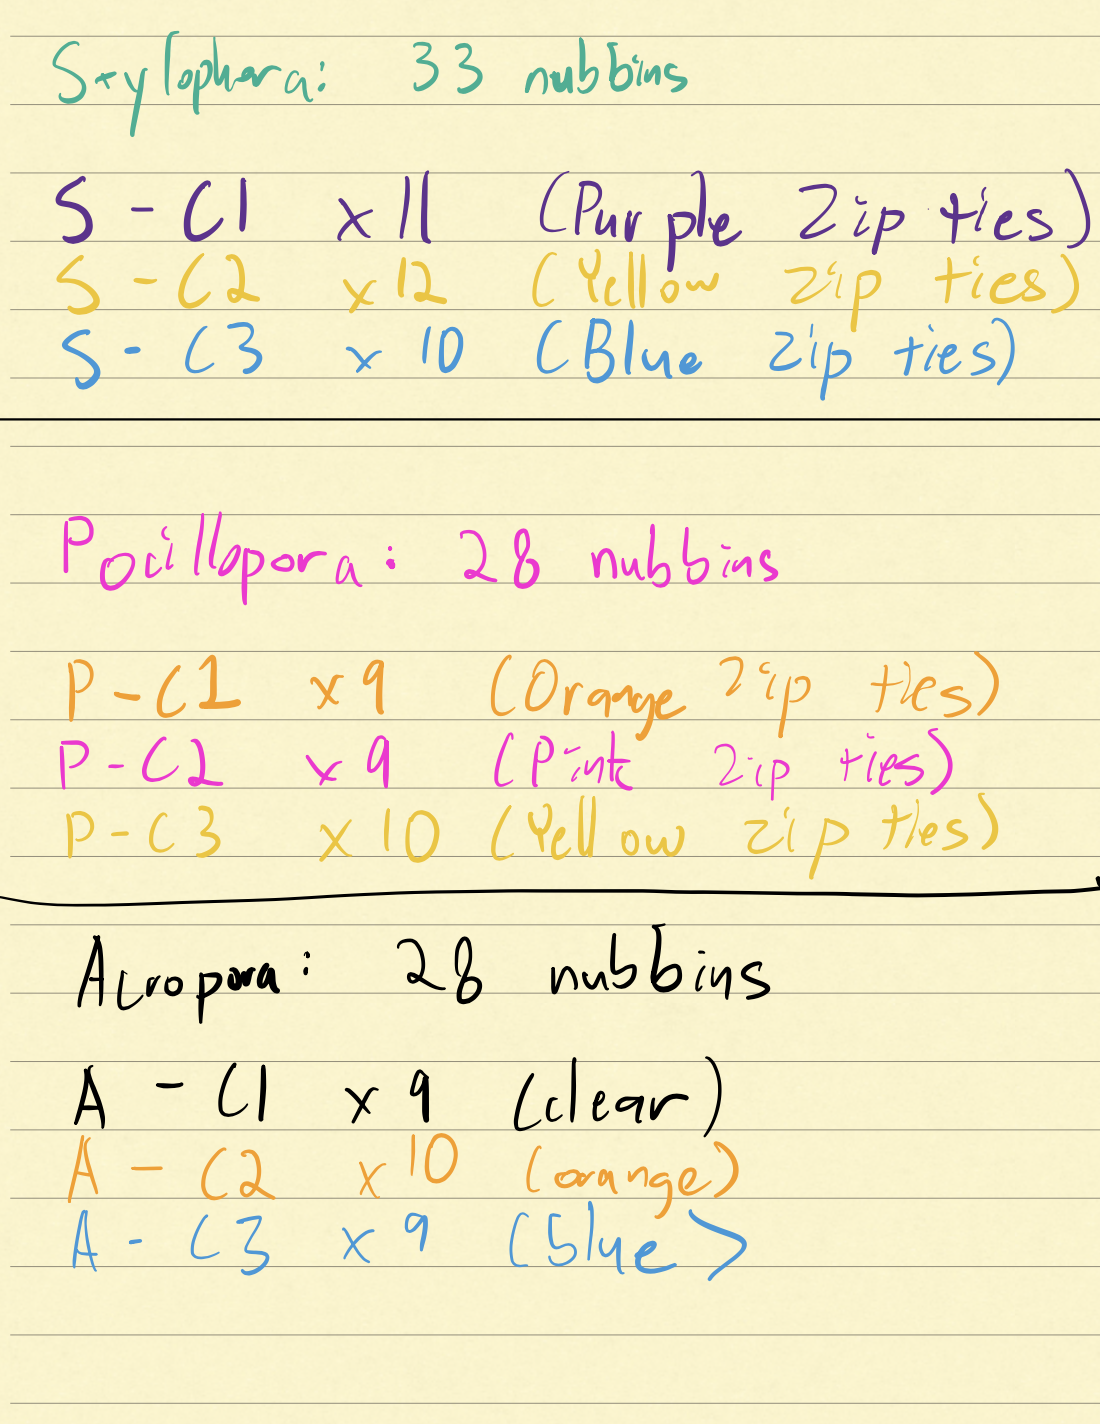 Stylophora: 33 nubbins
S - C1 x11 (Purple Zip ties)
S - C2 x12 (Yellow zip ties)
S - C3 x 10 (Blue zip ties)
Pocillopora: 28 nubbins
P - C1 x9 (Orange zip ties)
P - C2 x9 (Pink zip ties)
P - C3 x10 (Yellow zip ties)
Acropora: 28 nubbins
A - C1 x9 (clear)
A - C2 x10 (orange)
A - C3 x9 (blue)